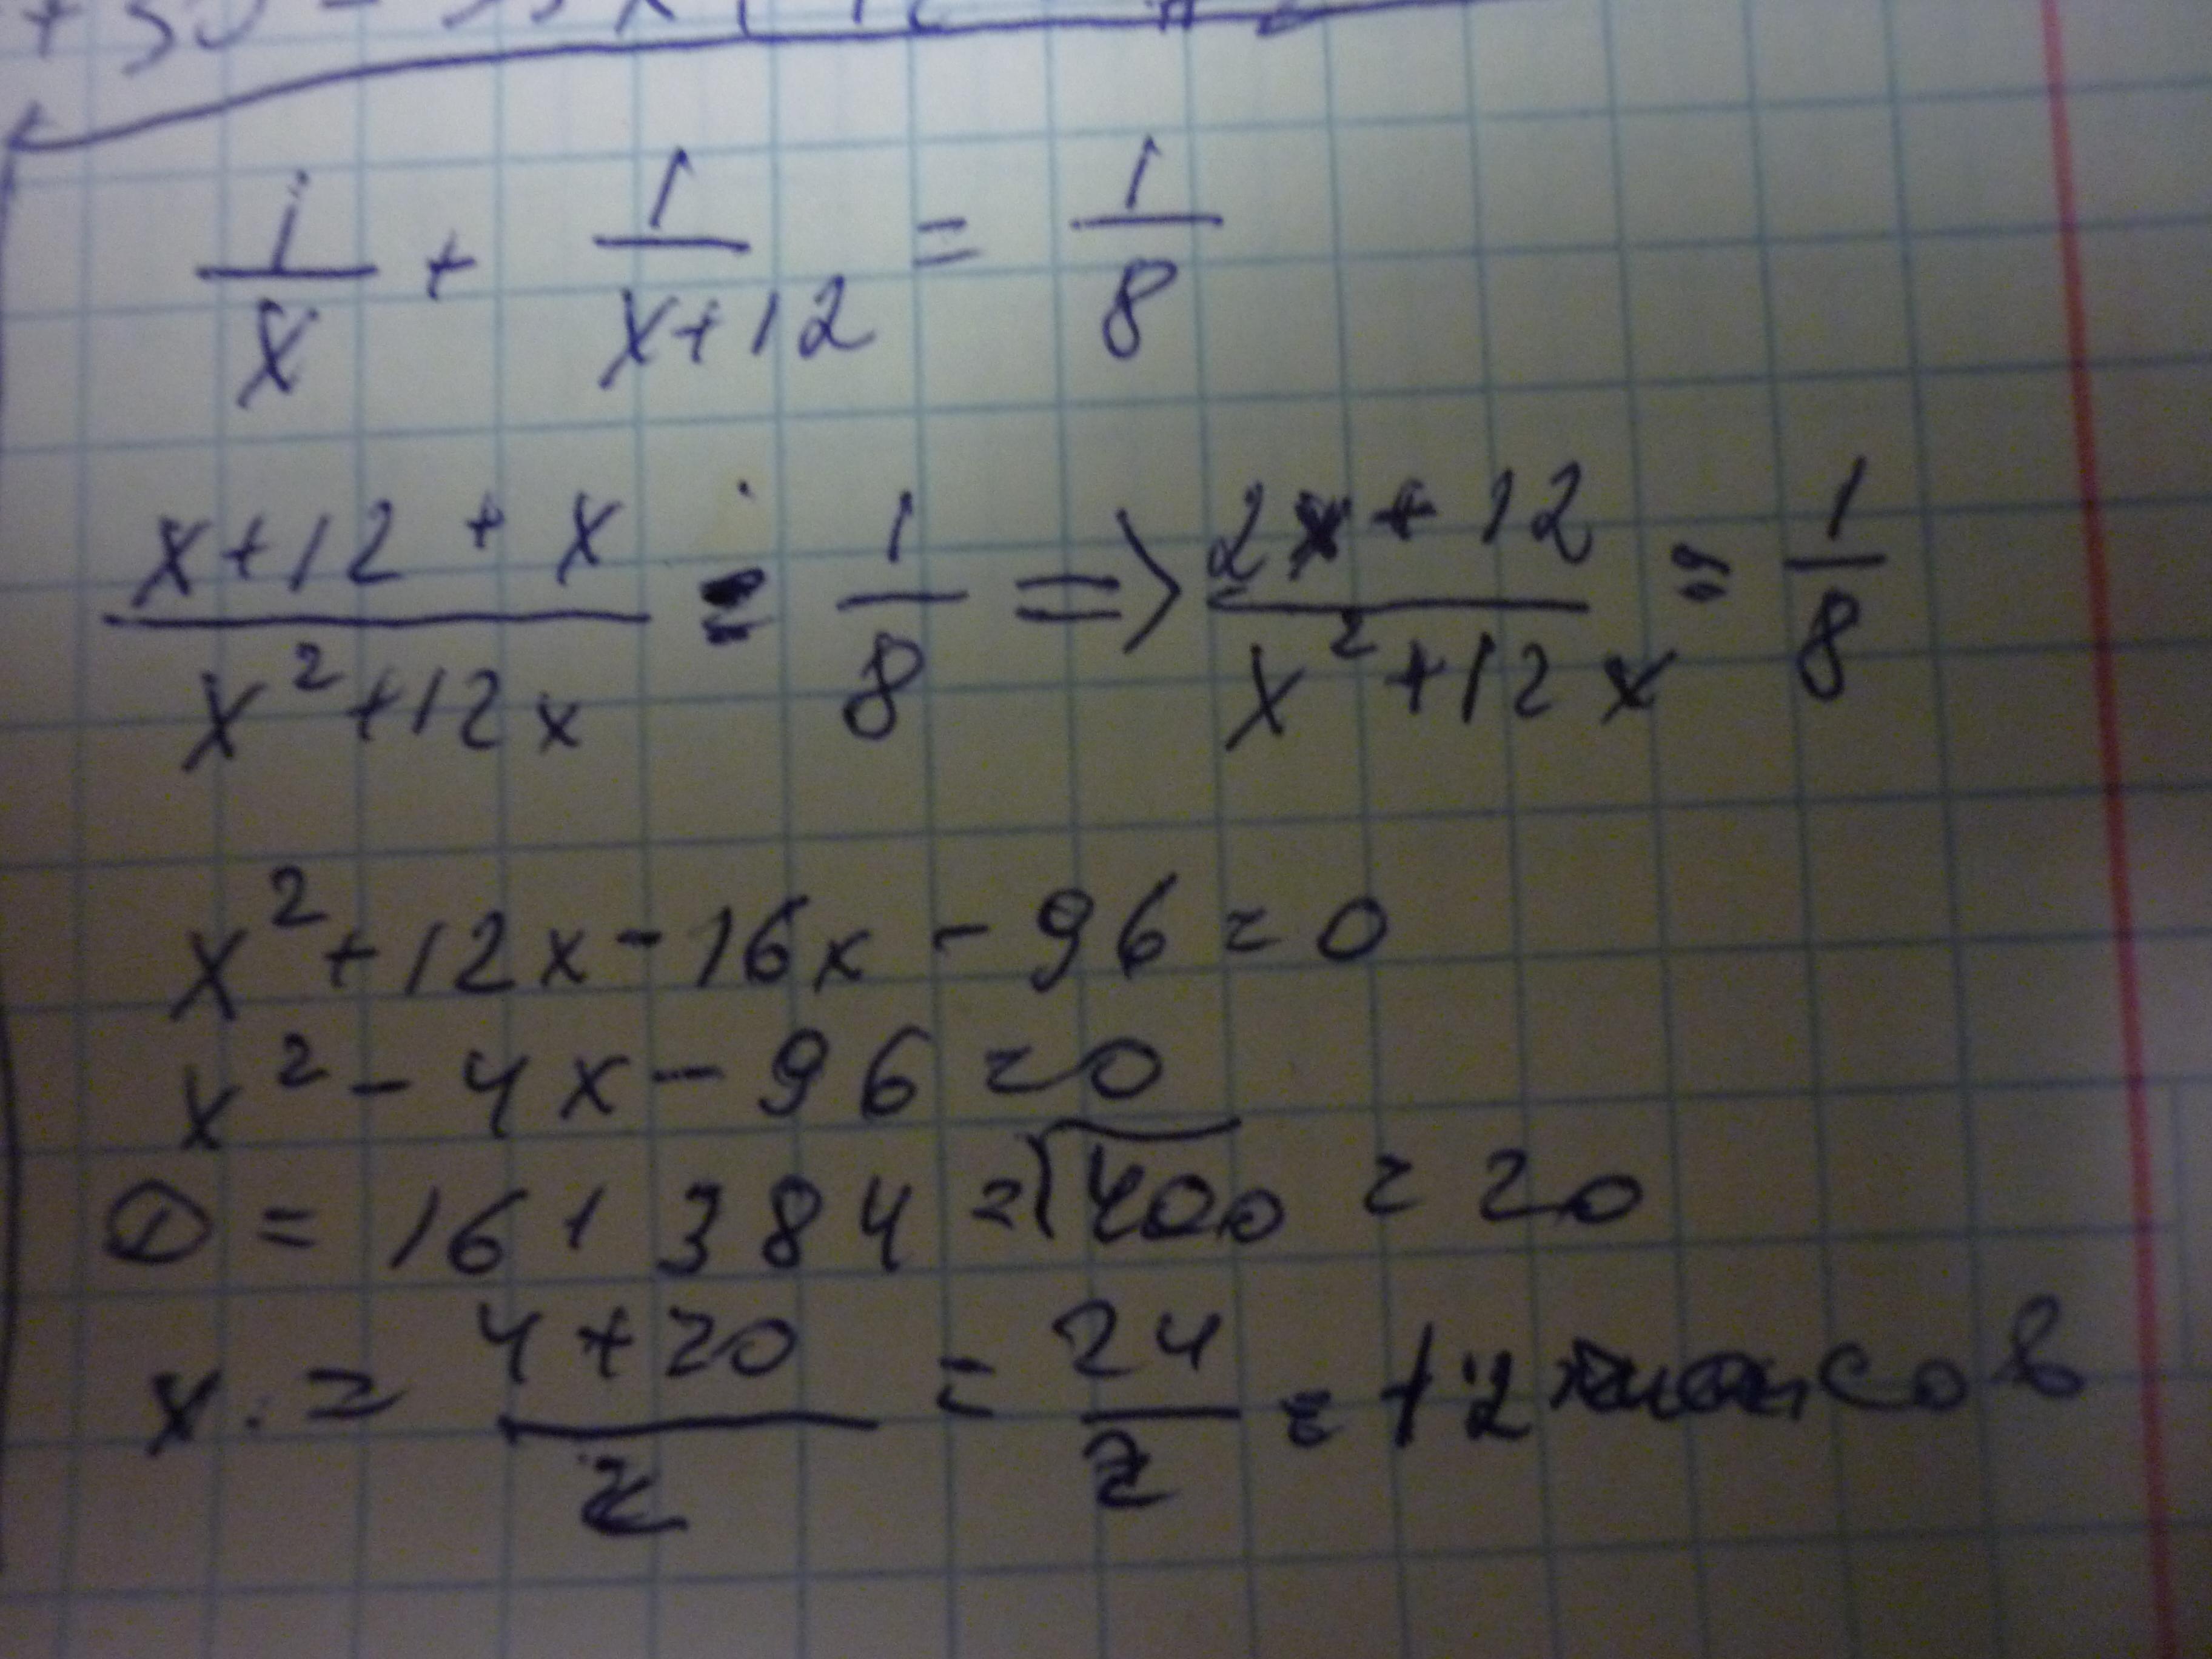 1/x + 1/(x+12) = 1/8
(x+12+x)/(x²+12x) = 1/8 => (2x+12)/(x²+12x) = 1/8
x²+12x-16x-96=0
x²-4x-96=0
D=16+384=√400=20
x.=(4+20)/2=24/2=12 часов